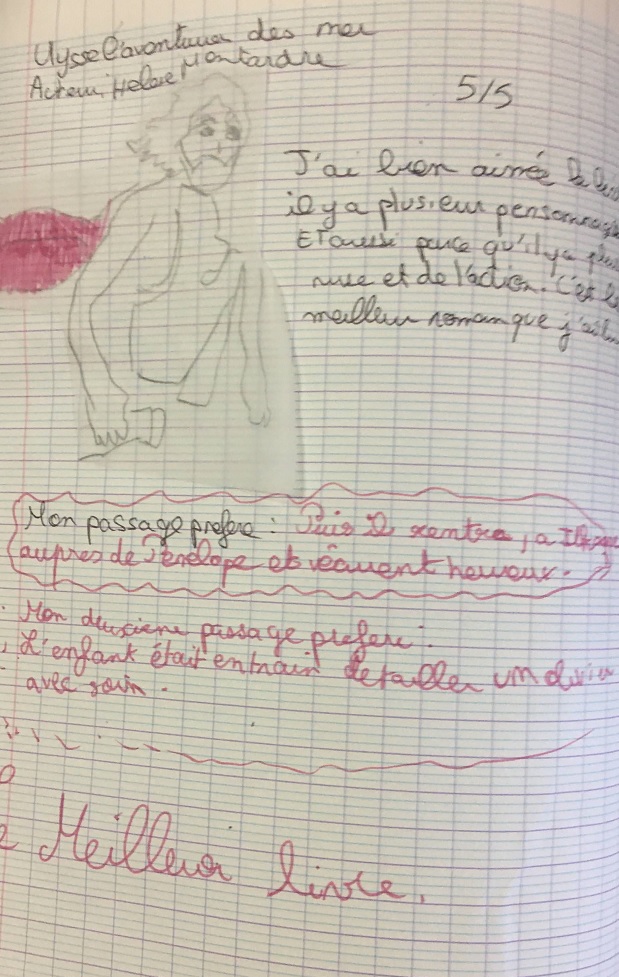 Ulysse l'aventurier des mer
Acteur, Helene Montardre
5/5
J'ai bien aimée le
il ya plusieur personnage
ET aussi parce qu'il ya
ruse et de l'action. C'est le
meilleur roman que j'ai
Mon passage prefere : Puis Il rentra, a
aupres de Penelope et vécurent heureux.
Mon deuxieme passage prefere :
L'enfant était entrain de tailler un
avec soin.
Meilleur livre.